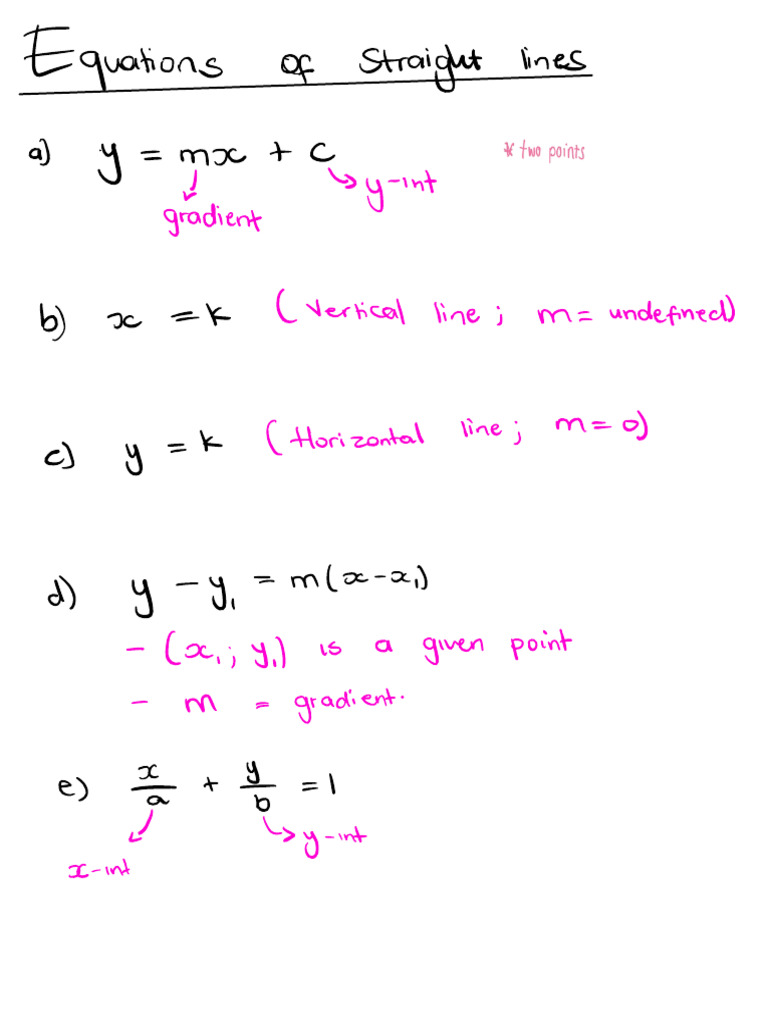 Equations of straight lines
a) y = mx + c
* two points
gradient
y-int
b) x = k (Vertical line; m = undefined)
c) y = k (Horizontal line; m = 0)
d) y - y₁ = m(x - x₁)
- (x₁; y₁) is a given point
- m = gradient.
e) x/a + y/b = 1
y-int
x-int